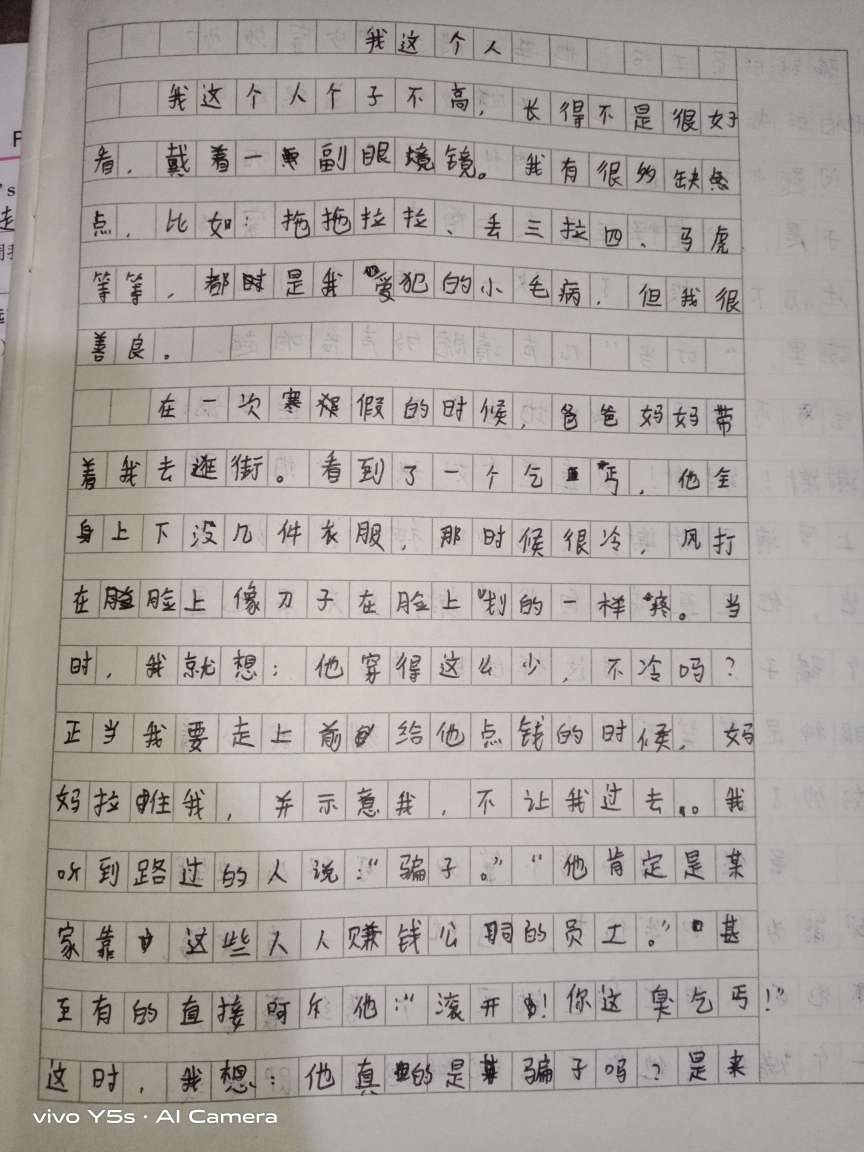 我这个人
我这个人个子不高，长得不是很好
看，戴着一副眼镜。我有很多缺
点，比如：拖拖拉拉、丢三拉四、马虎
等等，都是我爱犯的小毛病，但我很
善良。
在一次寒假的时候，爸爸妈妈带
着我去逛街。看到了一个乞丐，他全
身上下没几件衣服，那时候很冷，风打
在脸上像刀子在脸上划的一样疼。当
时，我就想：他穿得这么少，不冷吗？
正当我要走上前给他点钱的时候，妈
妈拉住我，并示意我，不让我过去。我
听到路过的人说：“骗子。”“他肯定是某
家靠这些人赚钱公司的员工。”甚
至有的直接呵斥他：“滚开！你这臭乞丐！”
这时，我想：他真的是骗子吗？是来
vivo Y5s · AI Camera